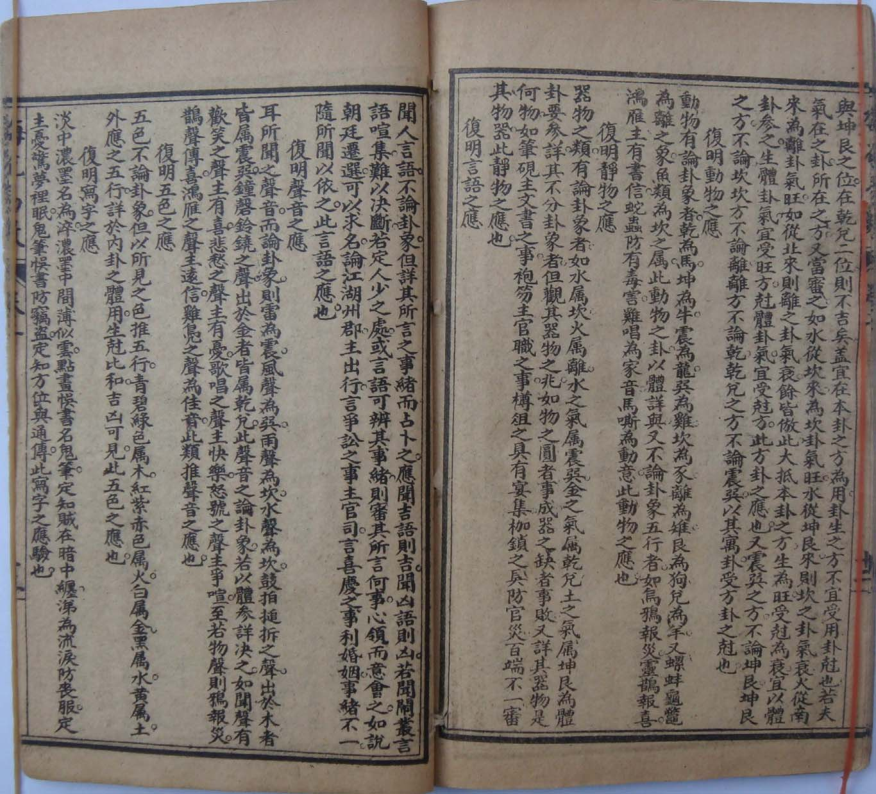 與坤艮之位在乾兌二位則不吉矣蓋宜在本卦之方為用卦生之方不宜受用卦尅也若夫
氣在之卦所在之方又當審之如水從坎來為坎卦氣旺水從坤艮來則坎之卦氣衰火從南
來為離卦氣旺如從北來則離之卦氣衰餘皆倣此大抵本卦之方生為旺受尅為衰宜以體
卦參之生體卦氣宜受旺方尅體卦氣宜受尅方此方卦之應也又震巽之方不論坤艮坤艮
之方不論坎坎方不論離離方不論乾乾兌之方不論震巽以其寓卦受方卦之尅也
復明動物之應
動物有論卦象者乾為馬坤為牛震為龍巽為雞坎為豕離為雉艮為狗兌為羊又螺蚌龜鼈
為離之象魚類為坎之属此動物之卦以體詳與又不論卦象五行者如烏鴉報災靈鵲報喜
鴻雁主有書信蛇蟲防有毒害雞唱為家音馬嘶為動意此動物之應也
復明靜物之應
器物之類有論卦象者如水属坎火属離水之氣属震巽金之氣属乾兌土之氣属坤艮為體
卦要參詳其不分卦象者但觀其器物之兆如物之圓者事成器之缺者事敗又詳其器物是
何物如筆硯主文書之事袍笏主官職之事樽俎之具有宴集枷鎖之具防官災百端不一審
其物器此靜物之應也
復明言語之應
聞人言語不論卦象但詳其所言之事緒而占卜之應聞吉語則吉聞凶語則凶若聞鬧叢言
語喧集難以決斷若定人少之處或言語可辨其事緒則審其所言何事心領而意會之如說
朝廷遷選可以求名論江湖州郡主出行言爭訟之事主官司言喜慶之事利婚姻事緒不一
隨所聞以依之此言語之應也
復明聲音之應
耳所聞之聲音而論卦象則雷為震風聲為巽雨聲為坎水聲為坎鼓拍搥折之聲出於木者
皆属震巽鐘磬鈴鐃之聲出於金者皆属乾兌此聲音之論卦象若以體參詳決之如聞聲有
歡笑之聲主有喜悲愁之聲主有憂歌唱之聲主快樂怒號之聲主爭喧至若物聲則鴉報災
鵲聲傳喜鴻雁之聲主遠信雞鳧之聲為佳音此類推聲音之應也
復明五色之應
五色不論卦象但以所見之色推五行青碧綠色属木紅紫赤色属火白属金黑属水黄属土
外應之五行詳於內卦之體用生尅比和吉凶可見此五色之應也
復明寫字之應
淡中濃墨名為淬濃墨中間薄似雲點畫悞書名鬼筆定知賊在暗中纏涕為流淚防喪服定
主憂驚夢裡眠鬼筆悞書防竊盜定知方位與通傳此寫字之應驗也